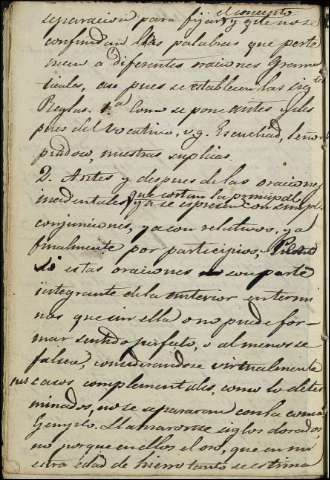 el concepto
separacion para fijar y que no se
confundan las palabras que perte
necen a diferentes oraciones Grama
ticales, asi pues se establecen las sig
Reglas. 1.ª Coma se pone antes y des
pues del vocativo, v.g. Escuchad,
piadoso, nuestras suplicas.
2. Antes y despues de las oraciones
incidentales que cortan la principal
ya se espresen con simples
conjunciones, ya con relativos, ya
finalmente por participios,
si estas oraciones son parte
integrante de la anterior en termi
nos que sin ella o no puede for-
mar sentido perfecto, o al menos se
falsea, considerandose virtualmente
casos complementales, como lo deter
minados, no se separaran con la coma
Gemplo. Llamaronse siglos dorados
no porque en ellos el oro, que en nu
estra edad de hierro tanto se estima